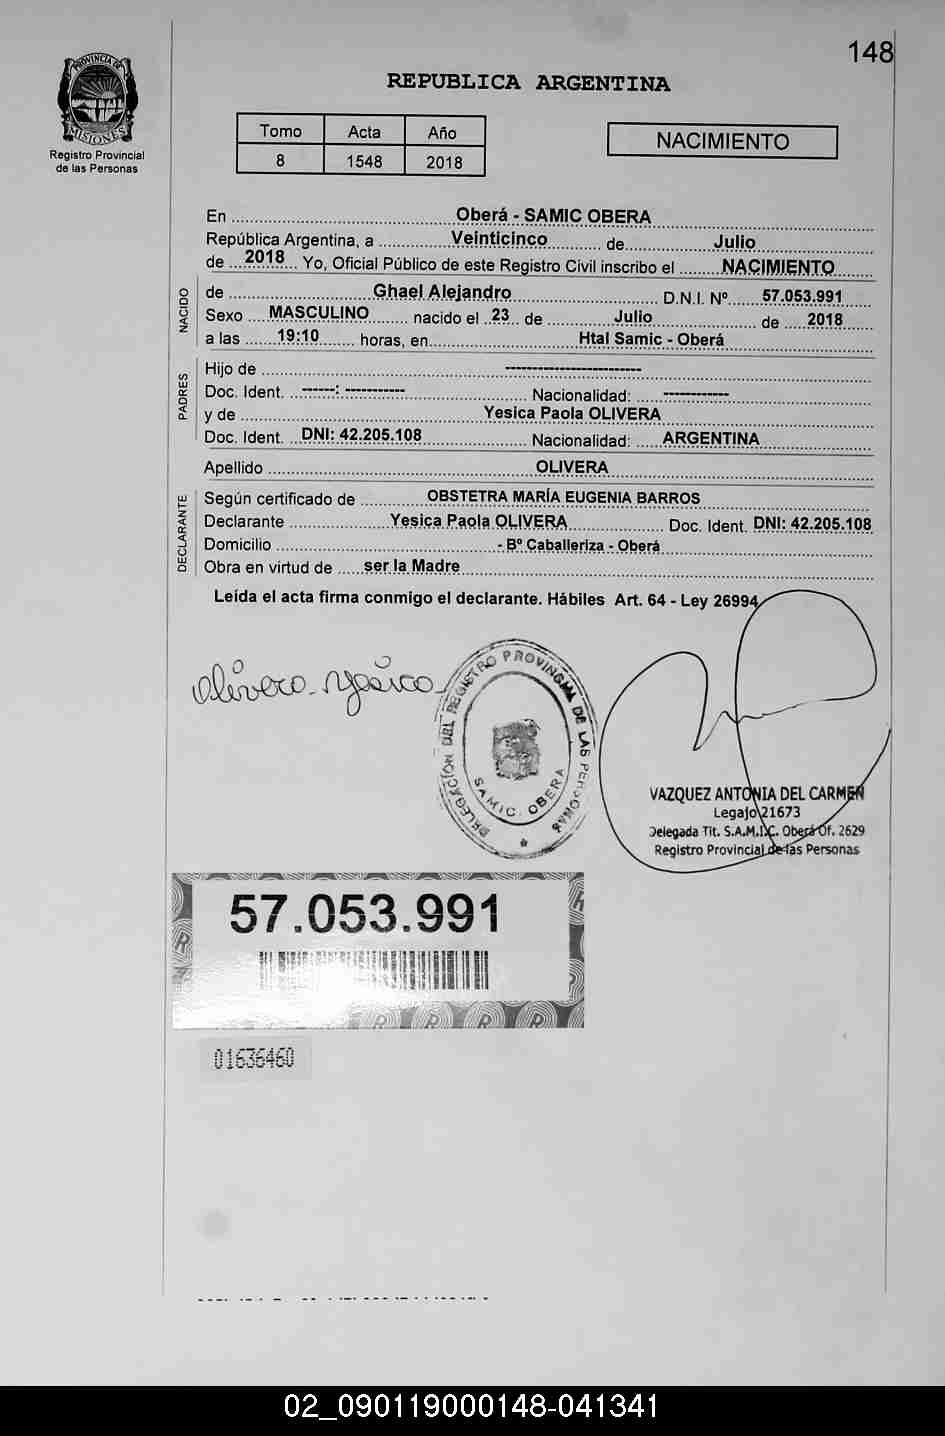 148
PROVINCIA DE
MISIONES
Registro Provincial
de las Personas
REPUBLICA ARGENTINA
Tomo Acta Año
8 1548 2018
NACIMIENTO
En Oberá - SAMIC OBERA
República Argentina, a Veinticinco de Julio
de 2018 Yo, Oficial Público de este Registro Civil inscribo el NACIMIENTO
NACIDO
de Ghael Alejandro D.N.I. Nº 57.053.991
Sexo MASCULINO nacido el 23 de Julio de 2018
a las 19:10 horas, en Htal Samic - Oberá
PADRES
Hijo de -------------------------
Doc. Ident. ------: ----------- Nacionalidad: ------------
y de Yesica Paola OLIVERA
Doc. Ident. DNI: 42.205.108 Nacionalidad: ARGENTINA
Apellido OLIVERA
DECLARANTE
Según certificado de OBSTETRA MARÍA EUGENIA BARROS
Declarante Yesica Paola OLIVERA Doc. Ident. DNI: 42.205.108
Domicilio - Bº Caballeriza - Oberá
Obra en virtud de ser la Madre
Leída el acta firma conmigo el declarante. Hábiles Art. 64 - Ley 26994
Olivera Yesica
DELEGACION DEL REGISTRO PROVINCIAL DE LAS PERSONAS
SAMIC. OBERA
VAZQUEZ ANTONIA DEL CARMEN
Legajo 21673
Delegada Tit. S.A.M.I.C. Oberá Of. 2629
Registro Provincial de las Personas
57.053.991
R
R R R R
01636460
02_090119000148-041341